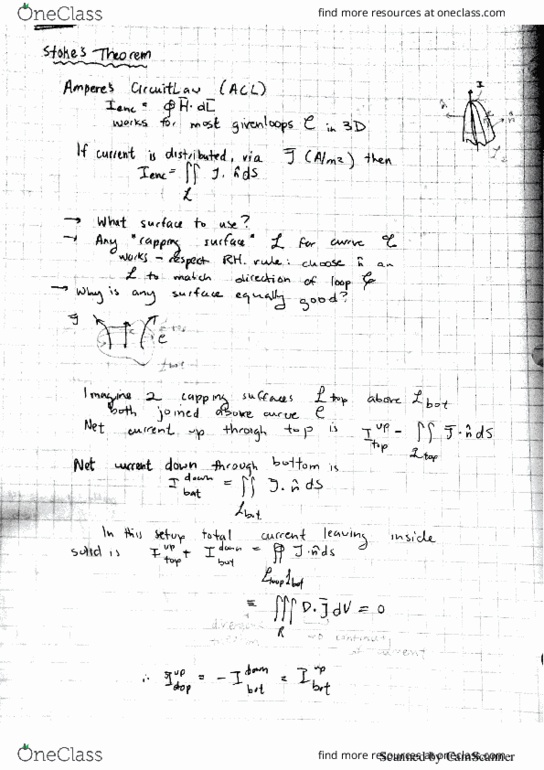 OneClass
find more resources at oneclass.com
Stoke's Theorem
Ampere's Circuit Law (ACL)
I enc = ∮ H̄ · dL̄
works for most given loops C in 3D
If current is distributed, via J̄ (A/m2) then
I enc = ∬ J · n̂ dS
→ What surface to use?
→ Any "capping surface" L for curve C
works - respect RH. rule: choose n̂ on
L to match direction of loop C
→ Why is any surface equally good?
J
C
Imagine 2 capping surfaces L top above L bot
both joined above curve C
Net current up through top is I up top - ∬ J̄ · n̂ dS
L top
Net current down through bottom is
I down bot = ∬ J · n̂ dS
L bot
In this setup total current leaving inside
solid is I up top + I down bot = ∯ J · n̂ dS
L top L bot
= ∭ D · J̄ dV = 0
R
of current
∴ I up top = - I down bot = I up bot
OneClass
find more resources at oneclass.com
Scanned by CamScanner